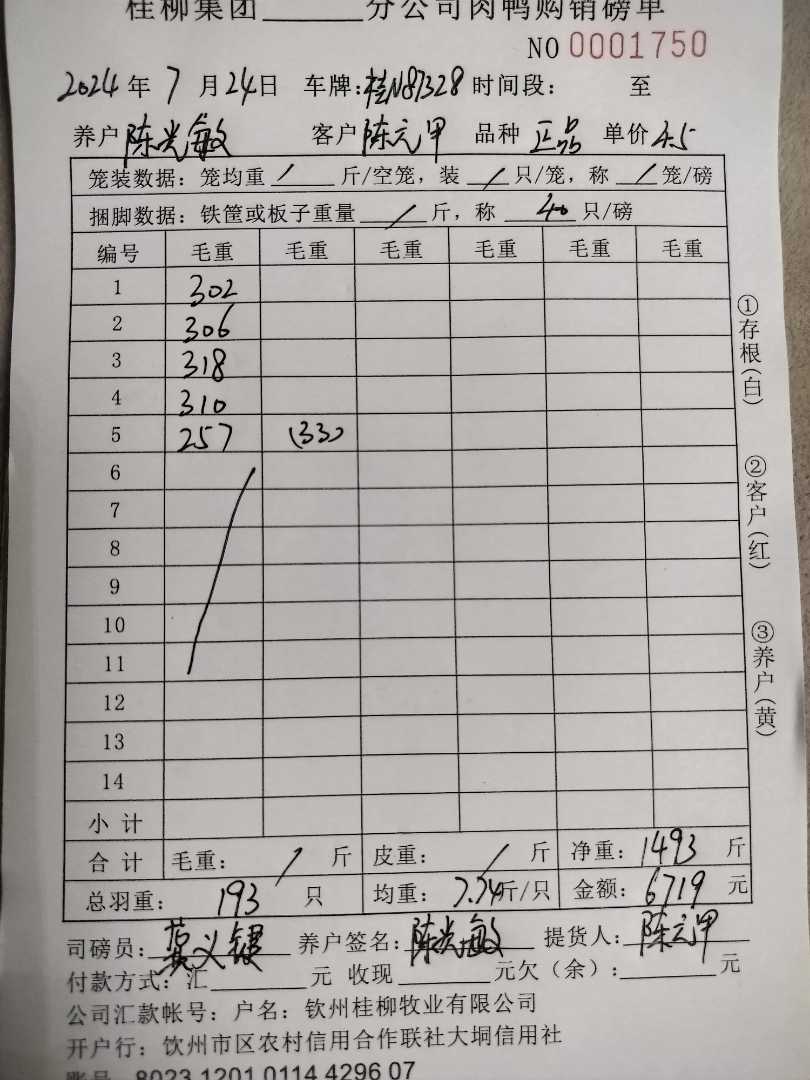 桂柳集团______分公司肉鸭购销磅单
NO 0001750
2024年7月24日 车牌:桂N87328 时间段: 至
养户 陈光敏 客户 陈元甲 品种 正品 单价 4.5
笼装数据:笼均重 / 斤/空笼,装 / 只/笼,称 / 笼/磅
捆脚数据:铁筐或板子重量 / 斤,称 40 只/磅
编号 毛重 毛重 毛重 毛重 毛重 毛重
1 302
2 306
3 318
4 310
5 257 (33)
6
7
8
9
10
11
12
13
14
小计
合计 毛重: / 斤 皮重: / 斤 净重: 1493 斤
总羽重: 193 只 均重: 7.74斤/只 金额: 6719 元
①存根(白)
②客户(红)
③养户(黄)
司磅员: 义键 养户签名: 陈光敏 提货人: 陈元甲
付款方式:汇______元 收现______元欠(余):______元
公司汇款帐号:户名:钦州桂柳牧业有限公司
开户行:饮州市区农村信用合作联社大垌信用社
账号 8023 1201 0114 4296 07